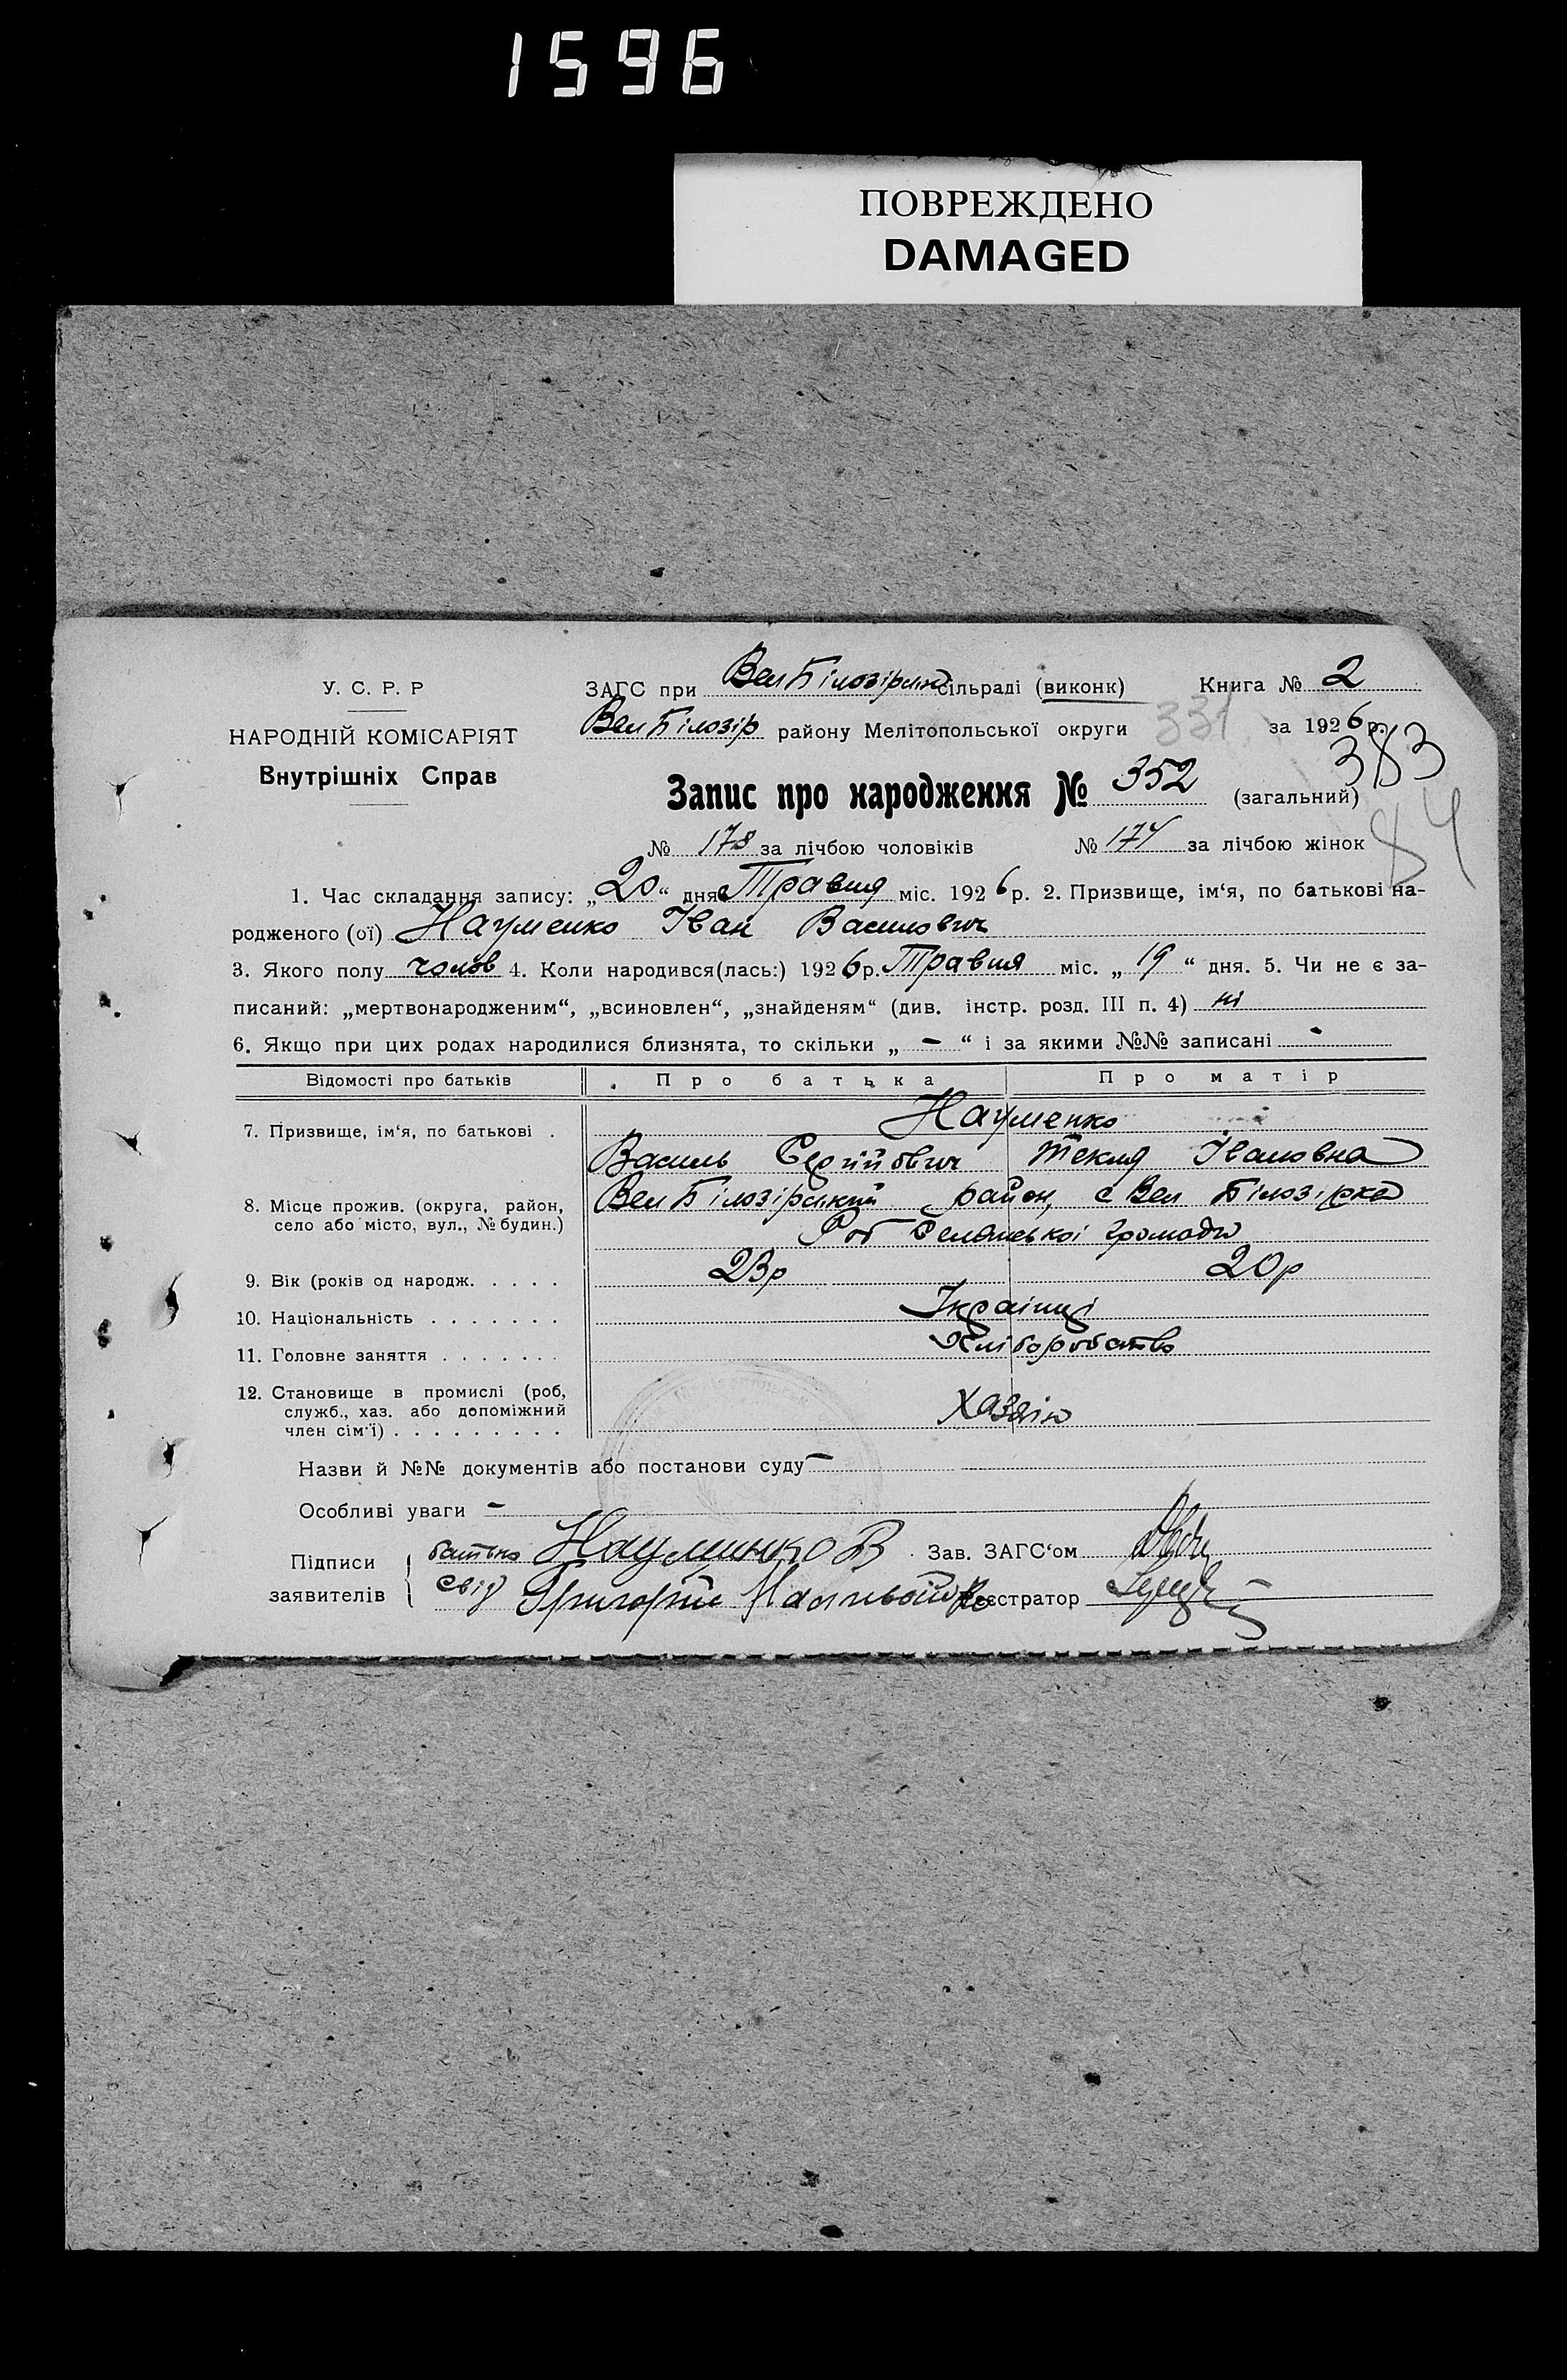 1596
ПОВРЕЖДЕНО
DAMAGED
У. С. Р. Р
НАРОДНІЙ КОМІСАРІЯТ
Внутрішніх Справ
ЗАГС при Вел Білозірськ сільраді (виконк) Книга № 2
Вел Білозір району Мелітопольської округи 331 за 1926 р.
383
Запис про народження № 352 (загальний)
84
№ 178 за лічбою чоловіків № 174 за лічбою жінок
1. Час складання запису: „20“ дня Травня міс. 1926 р. 2. Призвище, ім‘я, по батькові на-
родженого (ої) Науменко Іван Васильович
3. Якого полу чолов 4. Коли народився(лась:) 1926 р. Травня міс. „19“ дня. 5. Чи не є за-
писаний: „мертвонародженим“, „всиновлен“, „знайденям“ (див. інстр. розд. III п. 4) ні
6. Якщо при цих родах народилися близнята, то скільки „ – “ і за якими №№ записані -
Відомості про батьків Про батька Про матір
7. Призвище, ім‘я, по батькові . Науменко
Василь Сергійович Текля Івановна
8. Місце прожив. (округа, район, Вел Білозірський район, с Вел Білозірка
село або місто, вул., № будин.)
Роб Селянської громади
9. Вік (років од народж. . . . . 23р 20р
10. Національність . . . . . . . Українці
11. Головне заняття . . . . . . . Хліборобство
12. Становище в промислі (роб,
служб., хаз. або допоміжний Хазяїн
член сім‘ї) . . . . . . . . .
Назви й №№ документів або постанови суду –
Особливі уваги –
Підписи батько Науменко В Зав. ЗАГС‘ом
заявителів свід Григорій Реєстратор